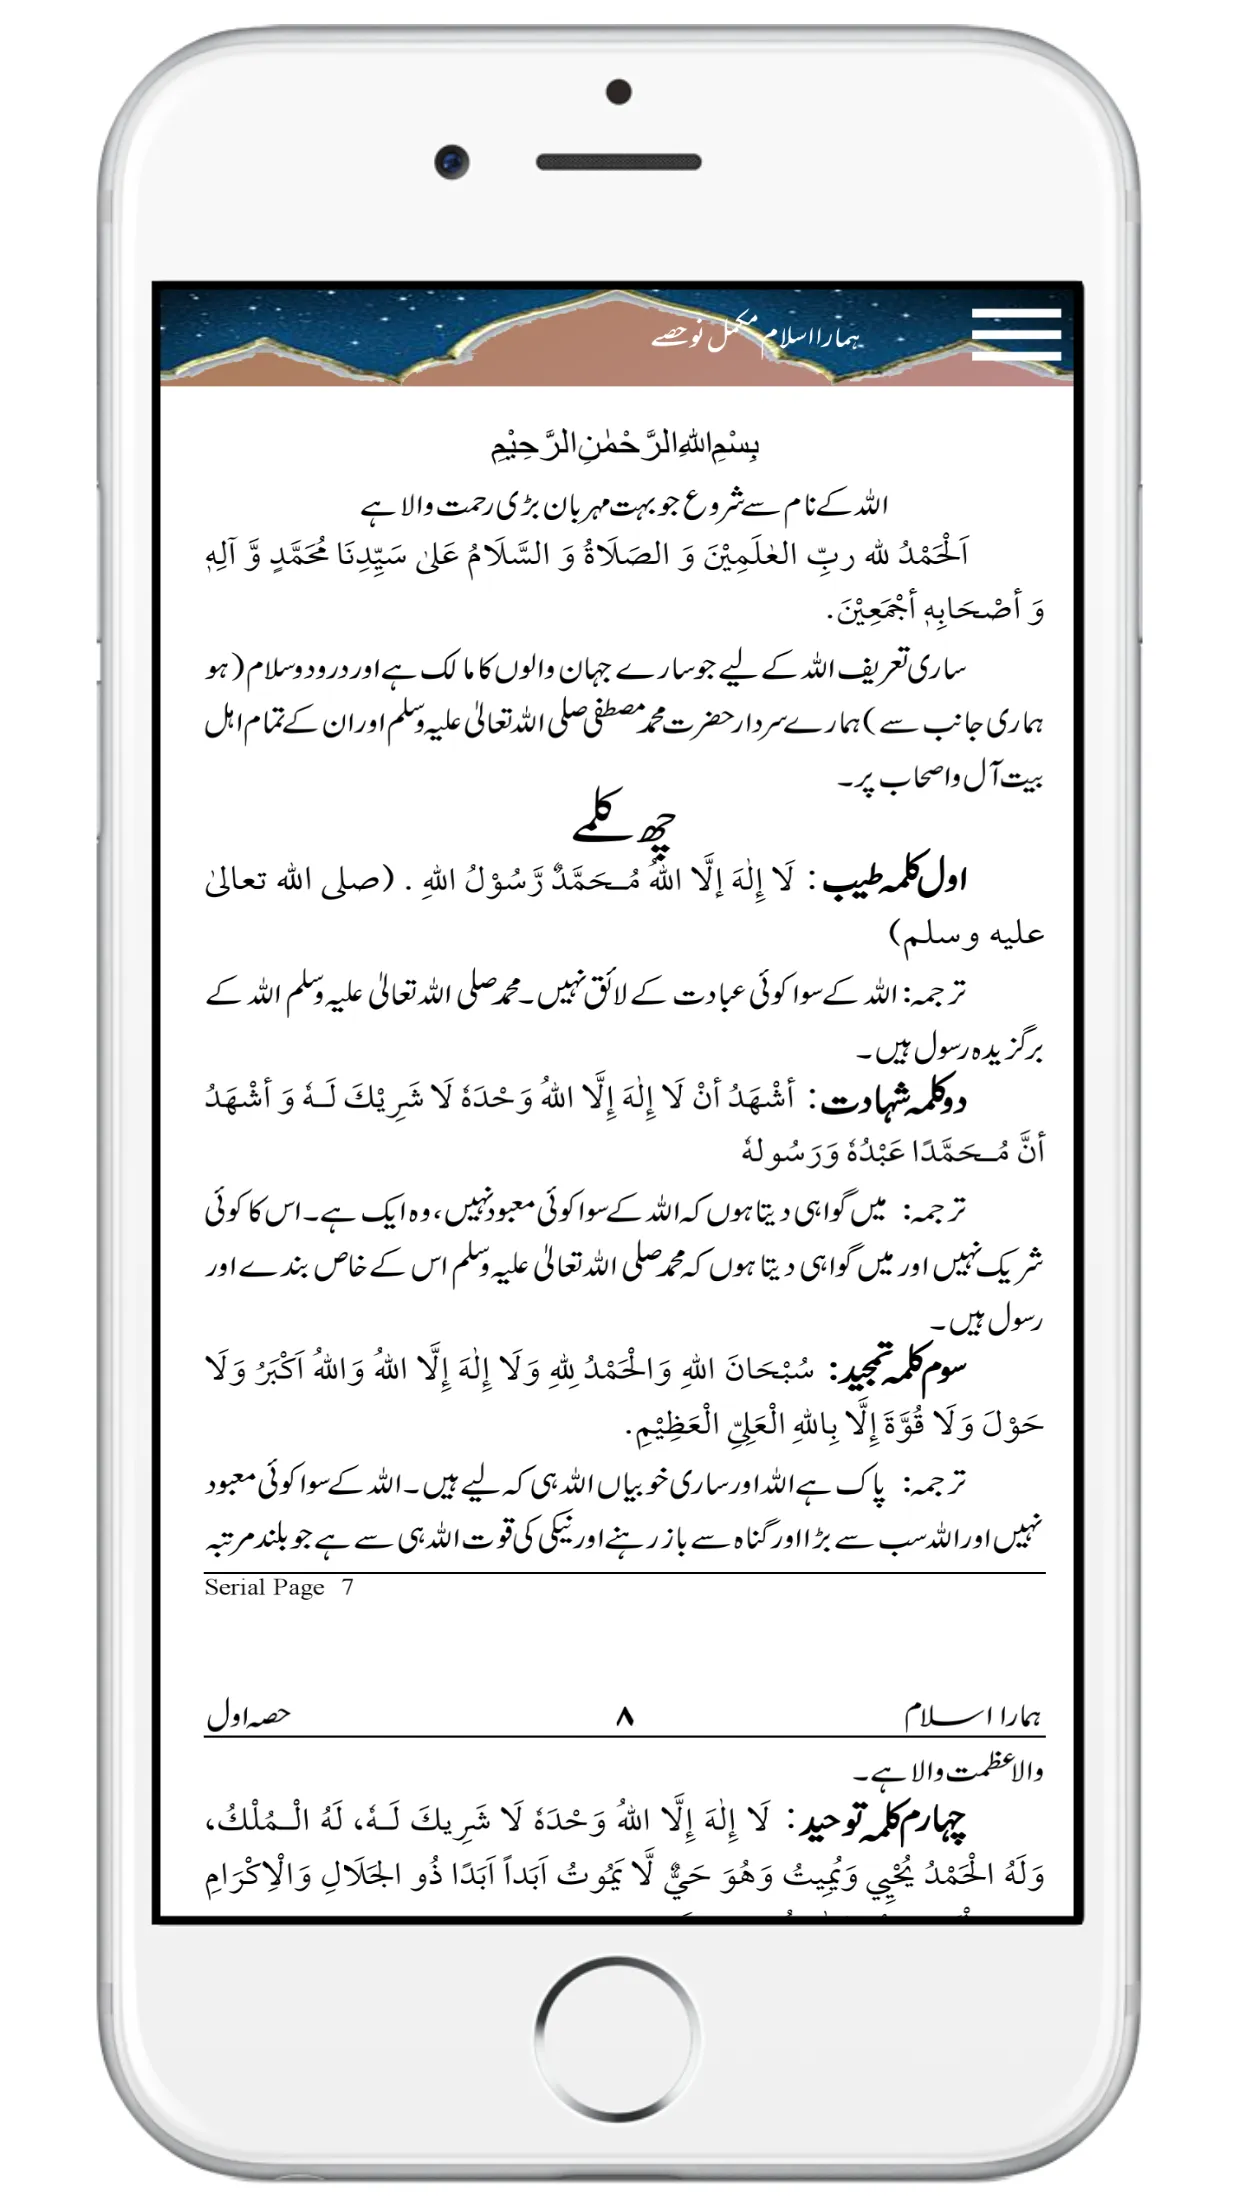 ہمارا اسلام مکمل نو حصے
بِسْمِ اللہِ الرَّحْمٰنِ الرَّحِیْمِ
اللہ کے نام سے شروع جو بہت مہربان بڑی رحمت والا ہے
اَلْحَمْدُ لله ربِّ العٰلَمِيْنَ وَ الصَلَاةُ وَ السَّلَامُ عَلىٰ سَيِّدِنَا مُحَمَّدٍ وَّ آلِهٖ
وَ أصْحَابِهٖ أجْمَعِيْنَ.
ساری تعریف اللہ کے لیے جو سارے جہان والوں کا مالک ہے اور درود و سلام (ہو
ہماری جانب سے) ہمارے سردار حضرت محمد مصطفی صلی اللہ تعالیٰ علیہ وسلم اور ان کے تمام اہل
بیت آل و اصحاب پر۔
چھ کلمے
اول کلمہ طیب: لَا إِلٰهَ إلَّا اللهُ مُـحَمَّدٌ رَّسُوْلُ اللهِ . (صلی الله تعالیٰ
علیه وسلم)
ترجمہ: اللہ کے سوا کوئی عبادت کے لائق نہیں۔ محمد صلی اللہ تعالیٰ علیہ وسلم اللہ کے
برگزیدہ رسول ہیں۔
دو کلمہ شہادت: أشْهَدُ أنْ لَا إِلٰهَ إِلَّا اللهُ وَحْدَهٗ لَا شَرِيْكَ لَـهٗ وَ أشْهَدُ
أنَّ مُـحَمَّدًا عَبْدُهٗ وَرَسُولهٗ
ترجمہ: میں گواہی دیتا ہوں کہ اللہ کے سوا کوئی معبود نہیں، وہ ایک ہے۔ اس کا کوئی
شریک نہیں اور میں گواہی دیتا ہوں کہ محمد صلی اللہ تعالیٰ علیہ وسلم اس کے خاص بندے اور
رسول ہیں۔
سوم کلمہ تمجید: سُبْحَانَ اللهِ وَالْحَمْدُ لِلّٰهِ وَلَا إِلٰهَ إِلَّا اللهُ وَاللهُ اَكْبَرُ وَلَا
حَوْلَ وَلَا قُوَّةَ إِلَّا بِاللهِ الْعَلِيِّ الْعَظِيْمِ.
ترجمہ: پاک ہے اللہ اور ساری خوبیاں اللہ ہی کہ لیے ہیں۔ اللہ کے سوا کوئی معبود
نہیں اور اللہ سب سے بڑا اور گناہ سے باز رہنے اور نیکی کی قوت اللہ ہی سے ہے جو بلند مرتبہ
Serial Page 7
ہمارا اسلام ۸ حصہ اول
والا عظمت والا ہے۔
چہارم کلمہ توحید: لَا إِلٰهَ إِلَّا اللهُ وَحْدَهٗ لَا شَرِيكَ لَـهٗ، لَهُ الْـمُلْكُ،
وَلَهُ الْحَمْدُ يُحْيِي وَيُمِيتُ وَهُوَ حَيٌّ لَّا يَمُوتُ اَبَداً اَبَدًا ذُو الْجَلَالِ وَالْاِكْرَامِ